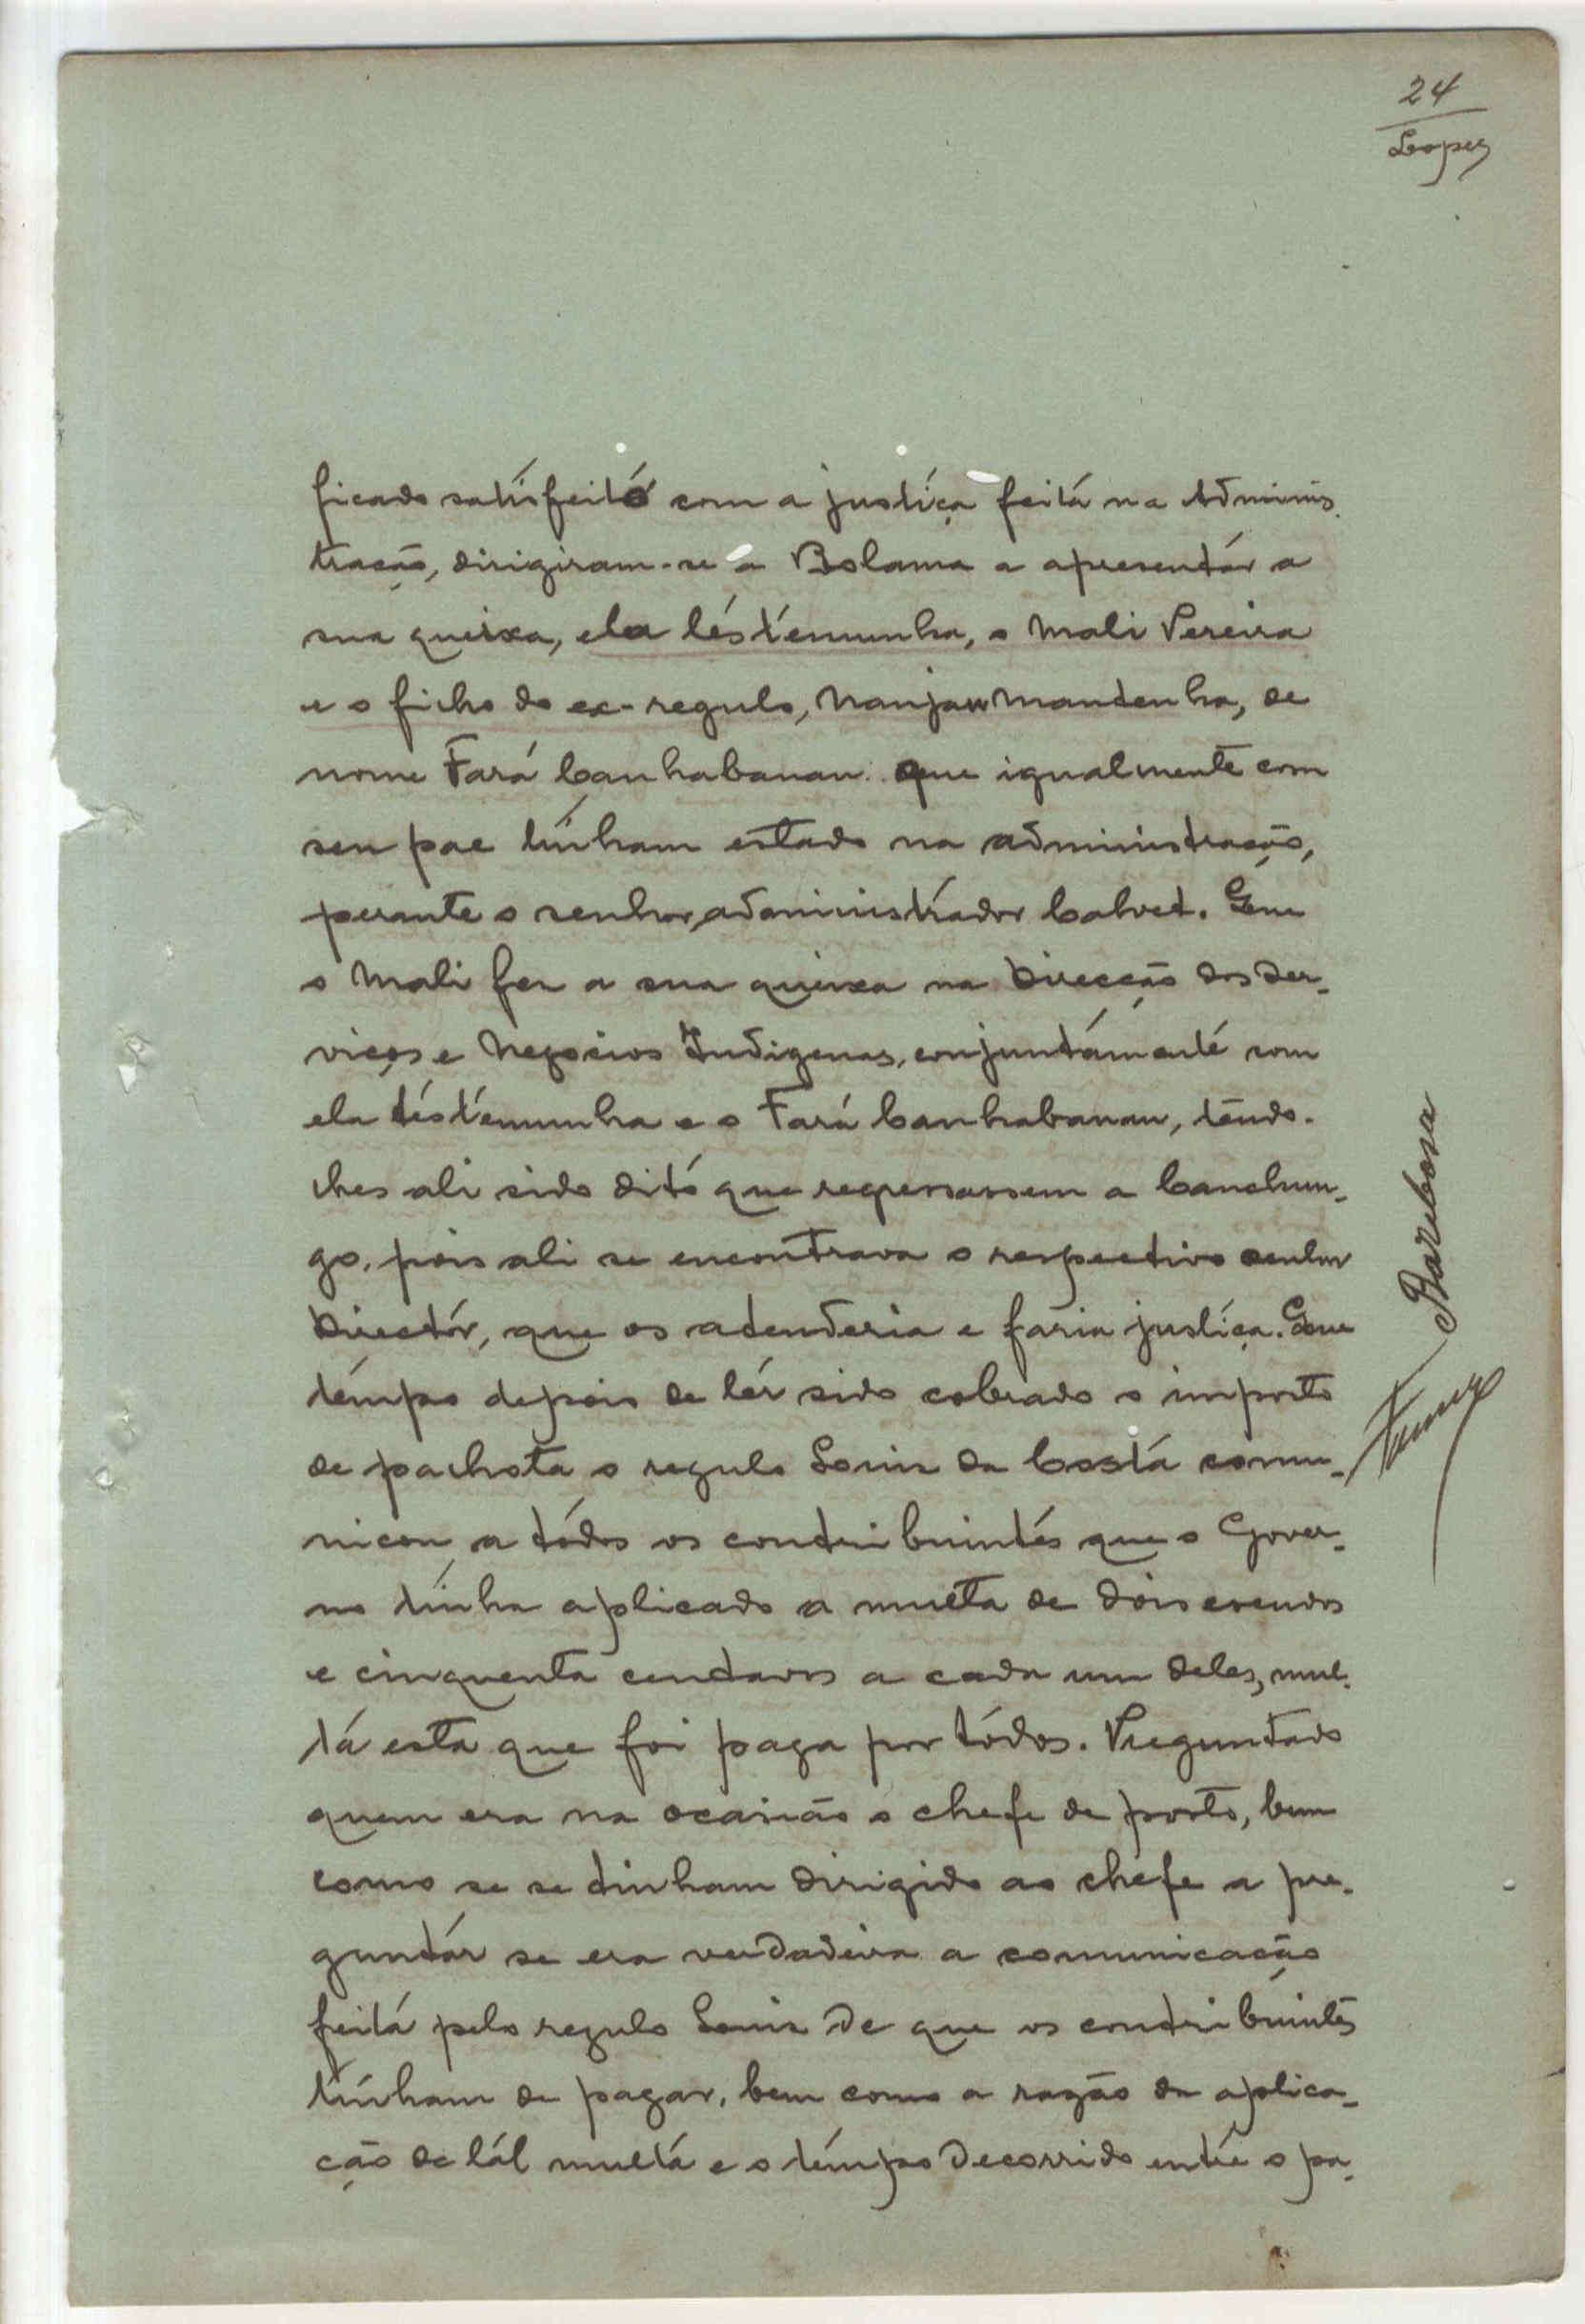 24
Lopes
ficado satisfeito com a justiça feita na Adminis-
tração, dirigiram-se a Bolama a apresentar a
sua queixa, ela testemunha, o Mali Pereira
e o filho do ex-regulo, Nanjau Mandenha, de
nome Fará Canhabanan que igualmente com
seu pae tinham estado na administração,
perante o senhor administrador Calvet. Que
o Mali fez a sua queixa na Direcção dos Ser-
viços e Negocios Indigenas, conjuntamente com
ela testemunha e o Fará Canhabanan, tendo-
lhes ali sido dito que regressassem a Canchun-
go, pois ali se encontrava o respectivo senhor
Director, que os atenderia e faria justiça. Que
tempo depois de ter sido cobrado o imposto
de palhota o regulo Louis da Costa comu-
nicou a todos os contribuintes que o Gover-
no tinha aplicado a multa de dois escudos
e cinquenta centavos a cada um deles, mul-
ta esta que foi paga por todos. Preguntado
quem era na ocasião o chefe de posto, bem
como se se tinham dirigido ao chefe a pre-
guntar se era verdadeira a comunicação
feita pelo regulo Louis de que os contribuintes
tinham de pagar, bem como a razão da aplica-
ção de tal multa e o tempo decorrido entre o pa-
Barbosa